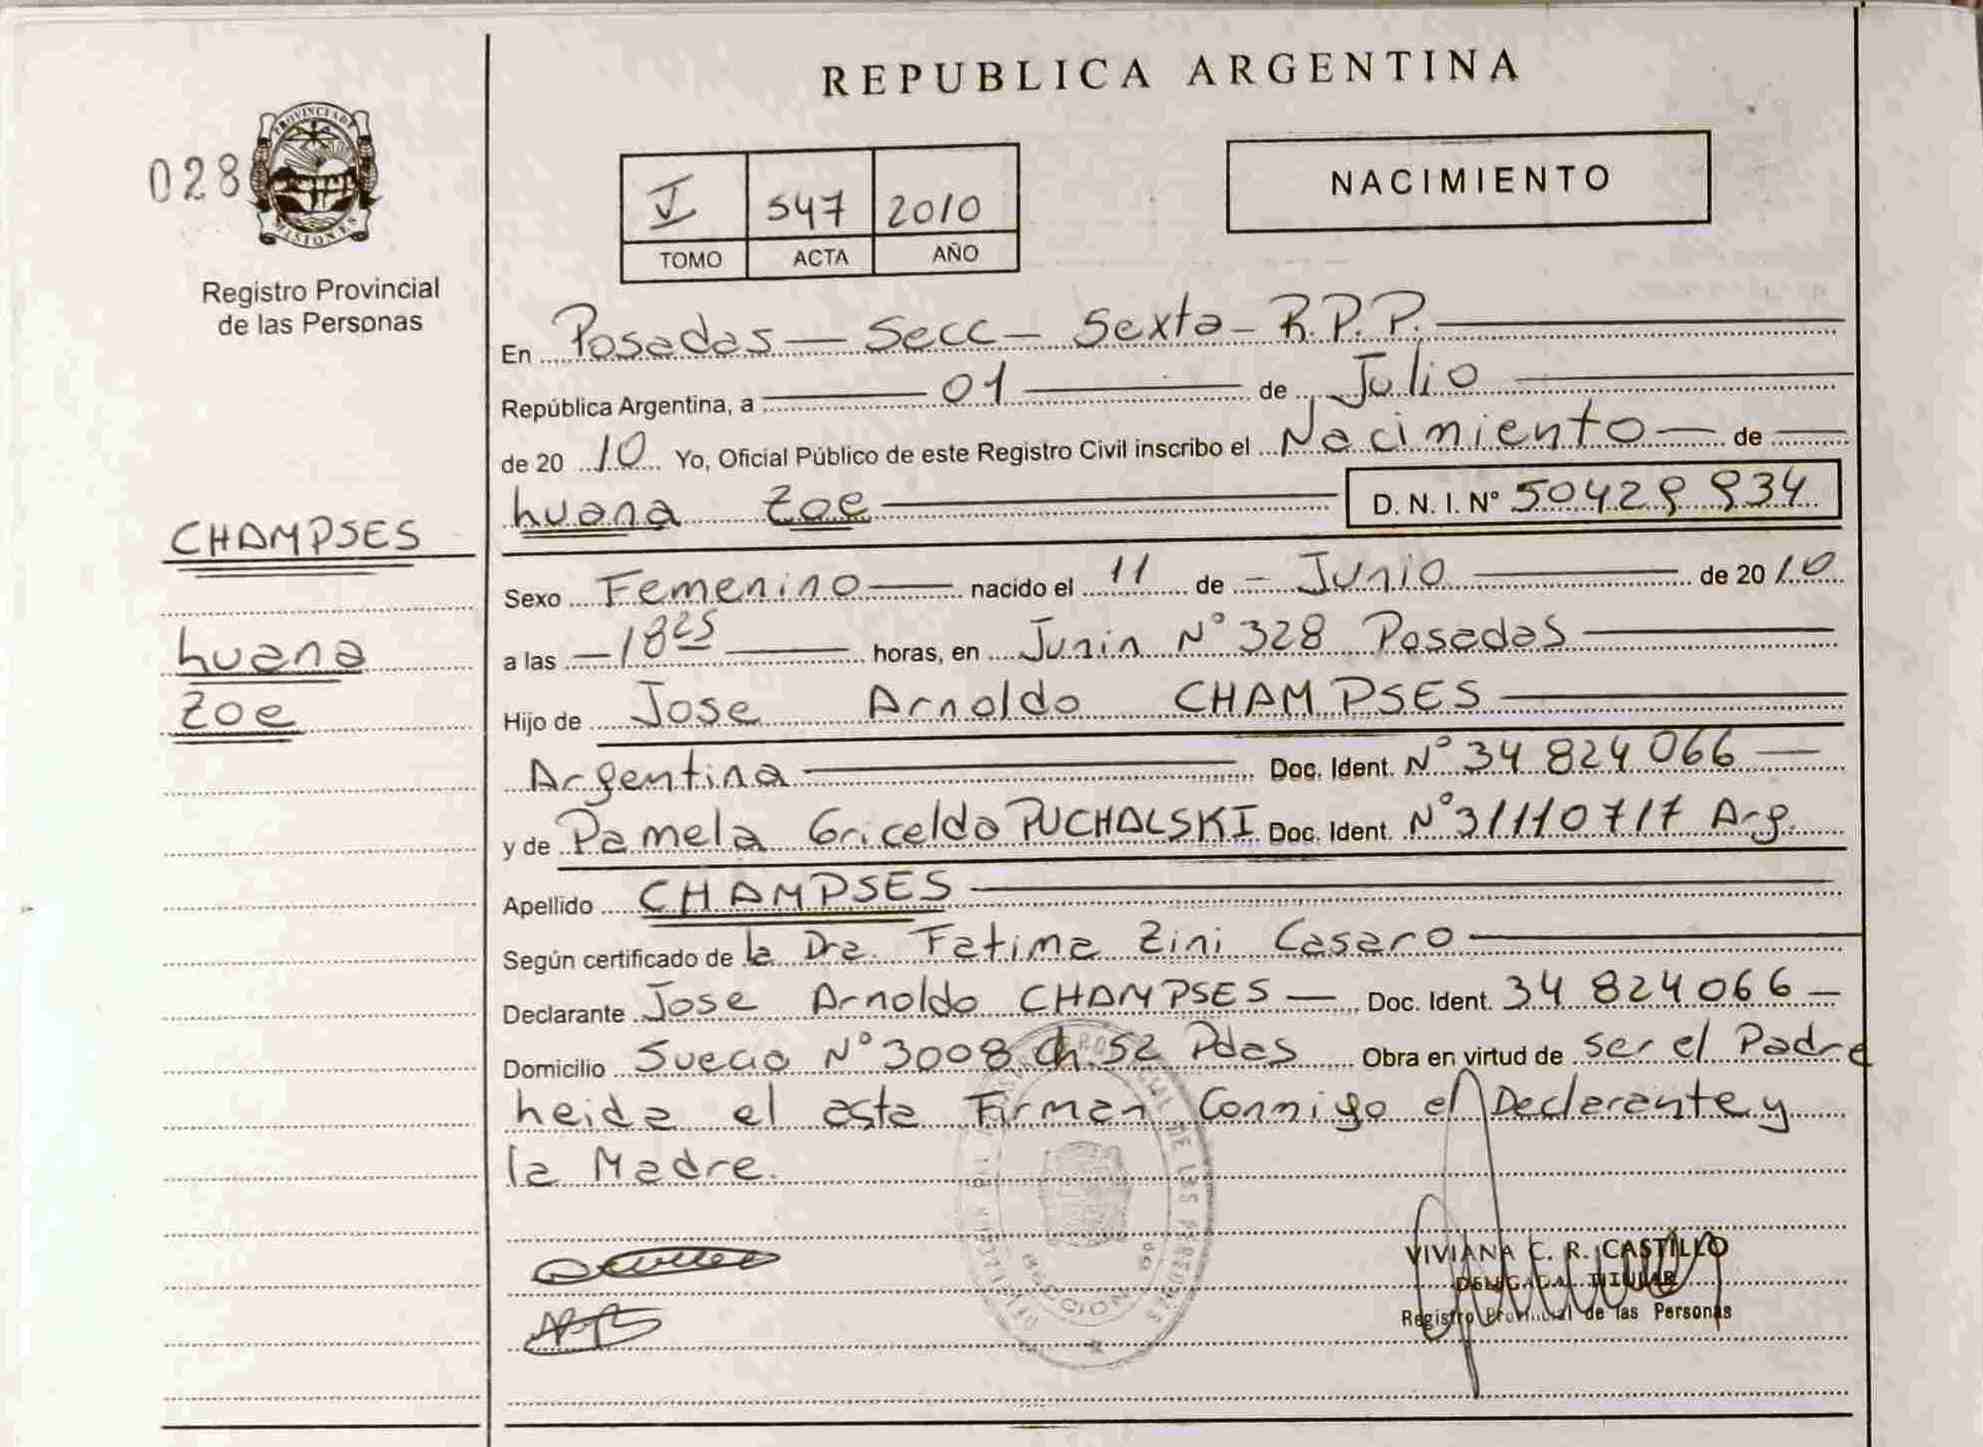 REPUBLICA ARGENTINA
028
PROVINCIA DE
MISIONES
Registro Provincial
de las Personas
I 547 2010
TOMO ACTA AÑO
NACIMIENTO
En Posadas — Secc — Sexta — R.P.P.
República Argentina, a 01 de Julio
de 20 10 Yo, Oficial Público de este Registro Civil inscribo el Nacimiento — de
Luana Zoe D. N. I. Nº 50429934
CHAMPSES
Luana
Zoe
Sexo Femenino nacido el 11 de — Junio de 20 10
a las — 18 25 horas, en Junin N° 328 Posadas
Hijo de Jose Arnoldo CHAMPSES
Argentina Doc. Ident. N° 34 824 066 —
y de Pamela Gricelda PUCHALSKI Doc. Ident. N° 31110717 Arg.
Apellido CHAMPSES
Según certificado de la Dra. Fatima Zini Casaro
Declarante Jose Arnoldo CHAMPSES — Doc. Ident. 34 824066 —
Domicilio Suecia N° 3008 Ch. 52 Pdas Obra en virtud de ser el Padre
Leida el acta Firman Conmigo el Declarante y
la Madre.
VIVIANA C. R. CASTILLO
DELEGADA TITULAR
Registro Provincial de las Personas